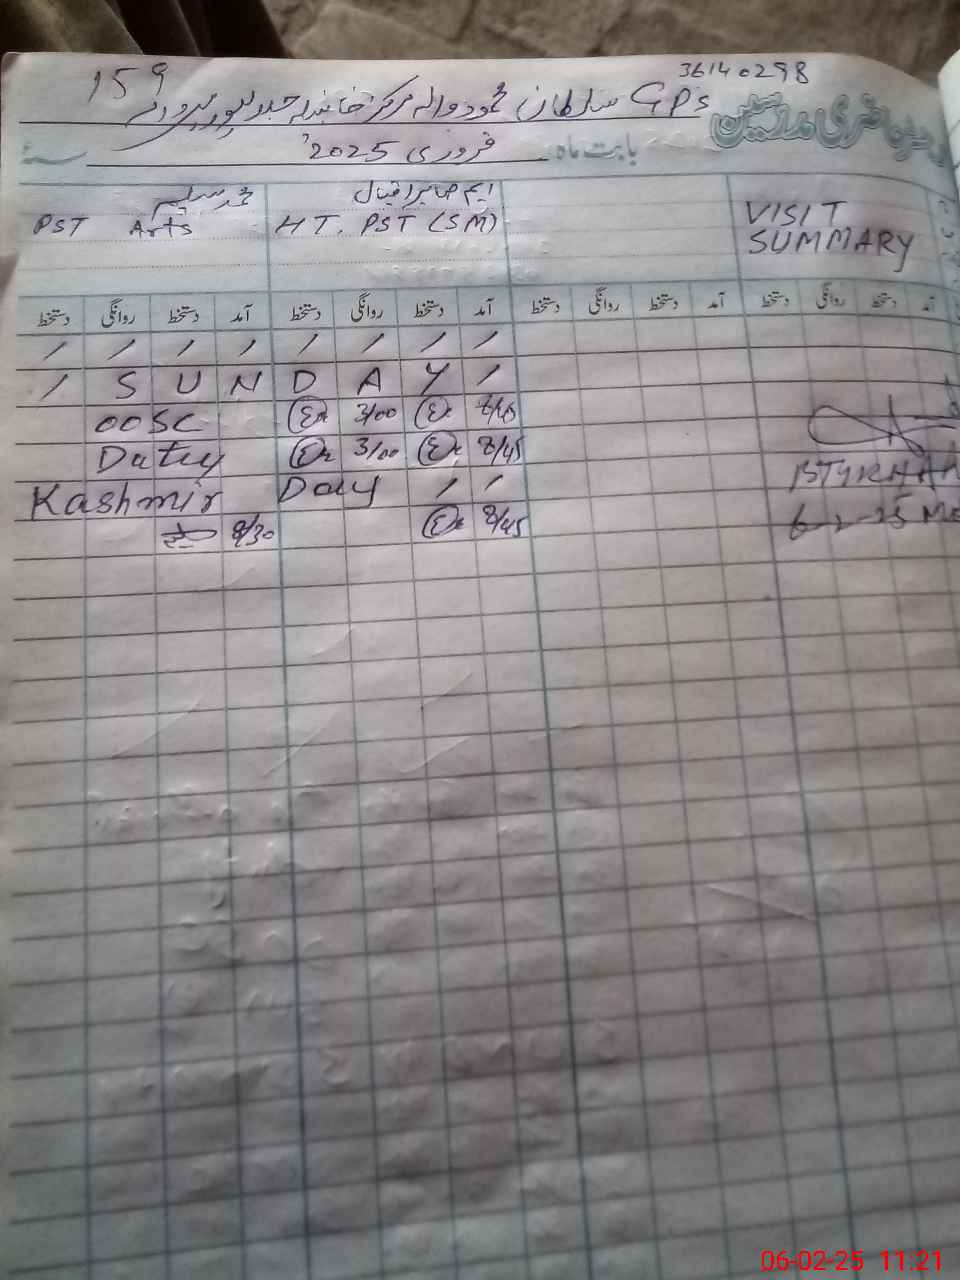 159
36140298
GPS سلطان محمود والہ مرکز خانبیلہ جلالپور پیروالہ
حاضری مدرسین
بابت ماہ فروری 2025ء سنہ
ایم صابر اقبال محمد سلیم
PST Arts HT. PST (SM) VISIT
SUMMARY
آمد دستخط روانگی دستخط آمد دستخط روانگی دستخط آمد دستخط روانگی دستخط آمد دستخط روانگی دستخط
/ / / / / / / /
/ S U N D A Y /
OOSC 3/00 8/45
Duty 3/00 8/45
Kashmir Day / /
8/30 8/45
6-2-25
06-02-25 11:21